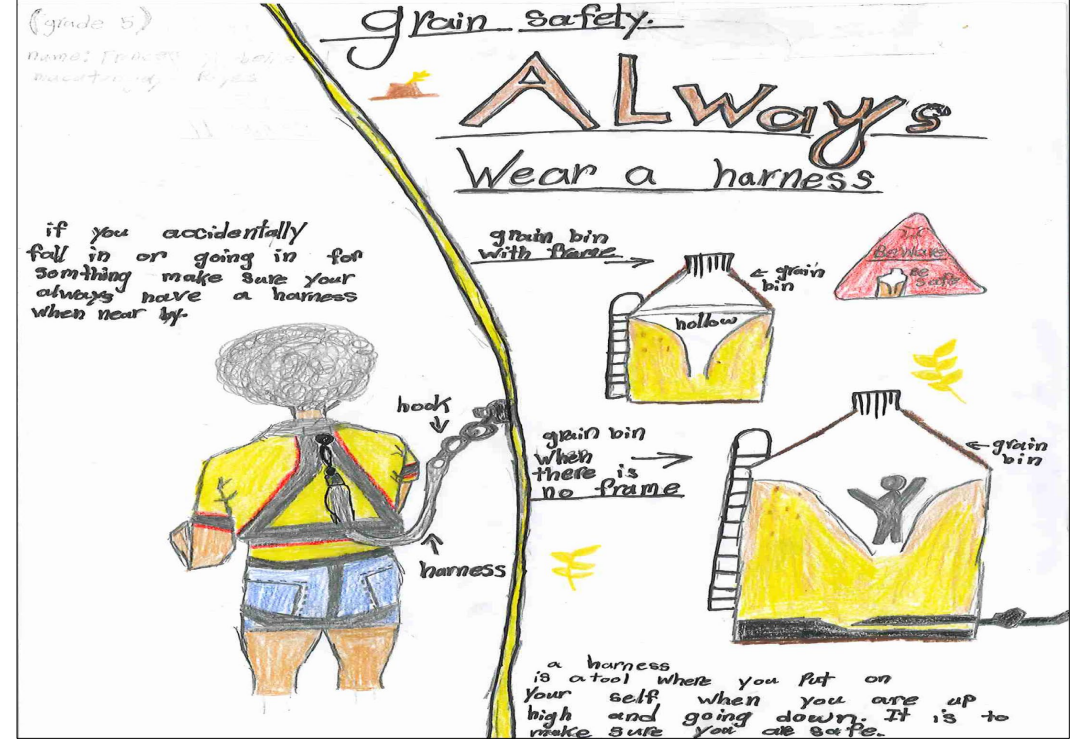 (grade 5)
name:
grain safety.
ALways
Wear a harness
if you accidentally
fall in or going in for
somthing make sure your
always have a harness
when near by.
hook
harness
grain bin
with frame
grain
bin
hollow
BeWare
Be
safe
grain bin
when
there is
no frame
grain
bin
a harness
is a tool where you put on
your self when you are up
high and going down. It is to
make sure you are safe.